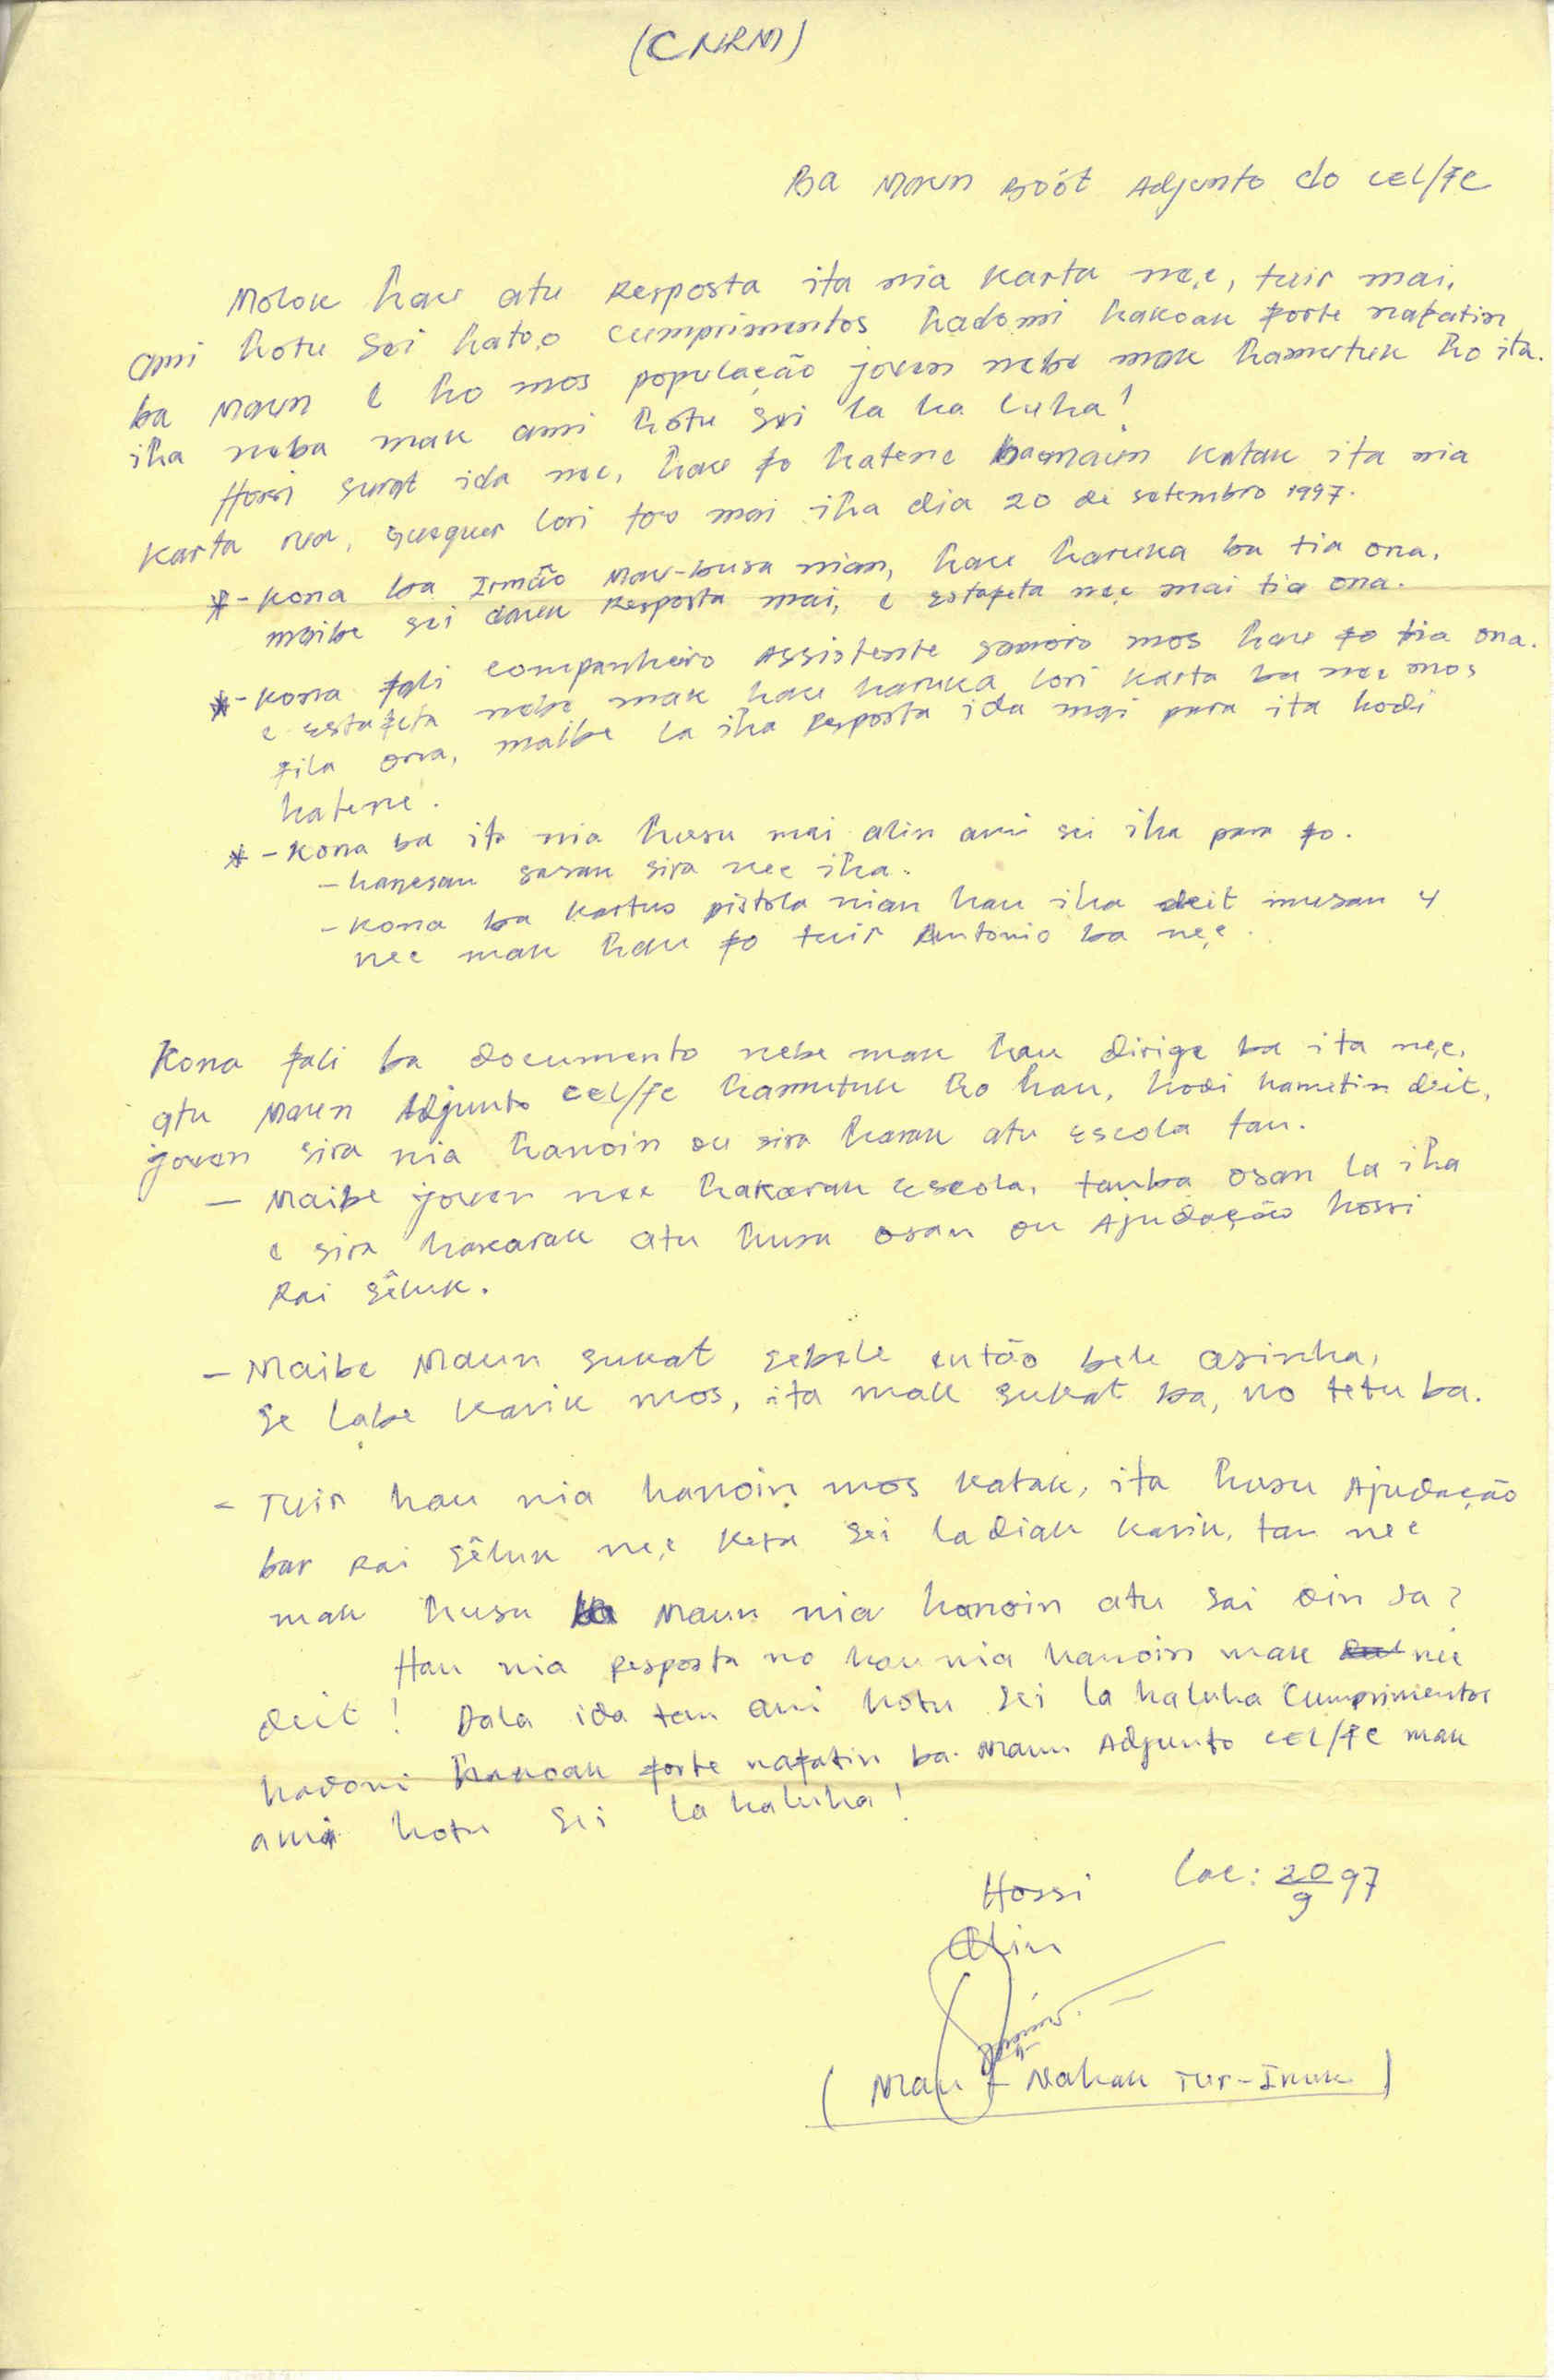 (CNRM)
Ba Maun Boót Adjunto do CEL/FC
Molok hau atu Resposta ita nia karta ne,e, tuir mai,
ami hotu sei hato,o cumprimentos hadomi hakoak forte nafatin
ba Maun e ho mos população joven nebe mak hamutuk ho ita.
iha neba mak ami hotu sei la ha luha!
Hossi surat ida nee, hau fo hatene ba maun katak ita nia
karta rua, quequer lori too mai iha dia 20 de setembro 1997.
*- Kona ba Irmão Mau-busa nian, hau haruka ba tia ona,
maibe sei dauk Resposta mai, e estafeta ne,e mai tia ona.
*- Kona fali companheiro Assistente samoro mos hau fo tia ona.
e estafeta nebe mak hau haruka lori karta ba nee mos
fila ona, maibe la iha Resposta ida mai para ita hodi
hatene.
*- Kona ba ita nia husu mai alin ami sei iha para fo.
- hanesan sasan sira nee iha.
- Kona ba kartus pistola nian hau iha deit musan 4
nee mak hau fo tuir Antonio ba ne,e.
Kona fali ba documento nebe mak hau dirige ba ita ne,e,
atu Maun Adjunto CEL/FC hamutuk ho hau, hodi hametin deit,
joven sira nia hanoin ou sira harak atu escola tan.
- Maibe joven nee hakarak escola, tanba osan la iha
e sira hakarak atu husu osan ou Ajudação hossi
Rai sêluk.
- Maibe Maun sukat sebele então bele asinha,
se labe karik mos, ita mak sukat ba, no tetu ba.
- Tuir hau nia hanoin mos katak, ita husu Ajudação
bar Rai sêluk ne,e keta sei ladiak karik, tan nee
mak husu ba Maun nia hanoin atu sai oin sa?
Hau nia Resposta no hau nia hanoin mak nee
deit! Dala ida tan ami hotu sei la haluha Cumprimentos
hadomi hakoak forte nafatin ba Maun Adjunto CEL/FC mak
ami hotu sei la haluha!
Hossi Loc: 20/9 97
Alin
(Mau - Nahak Tur-Inuk)